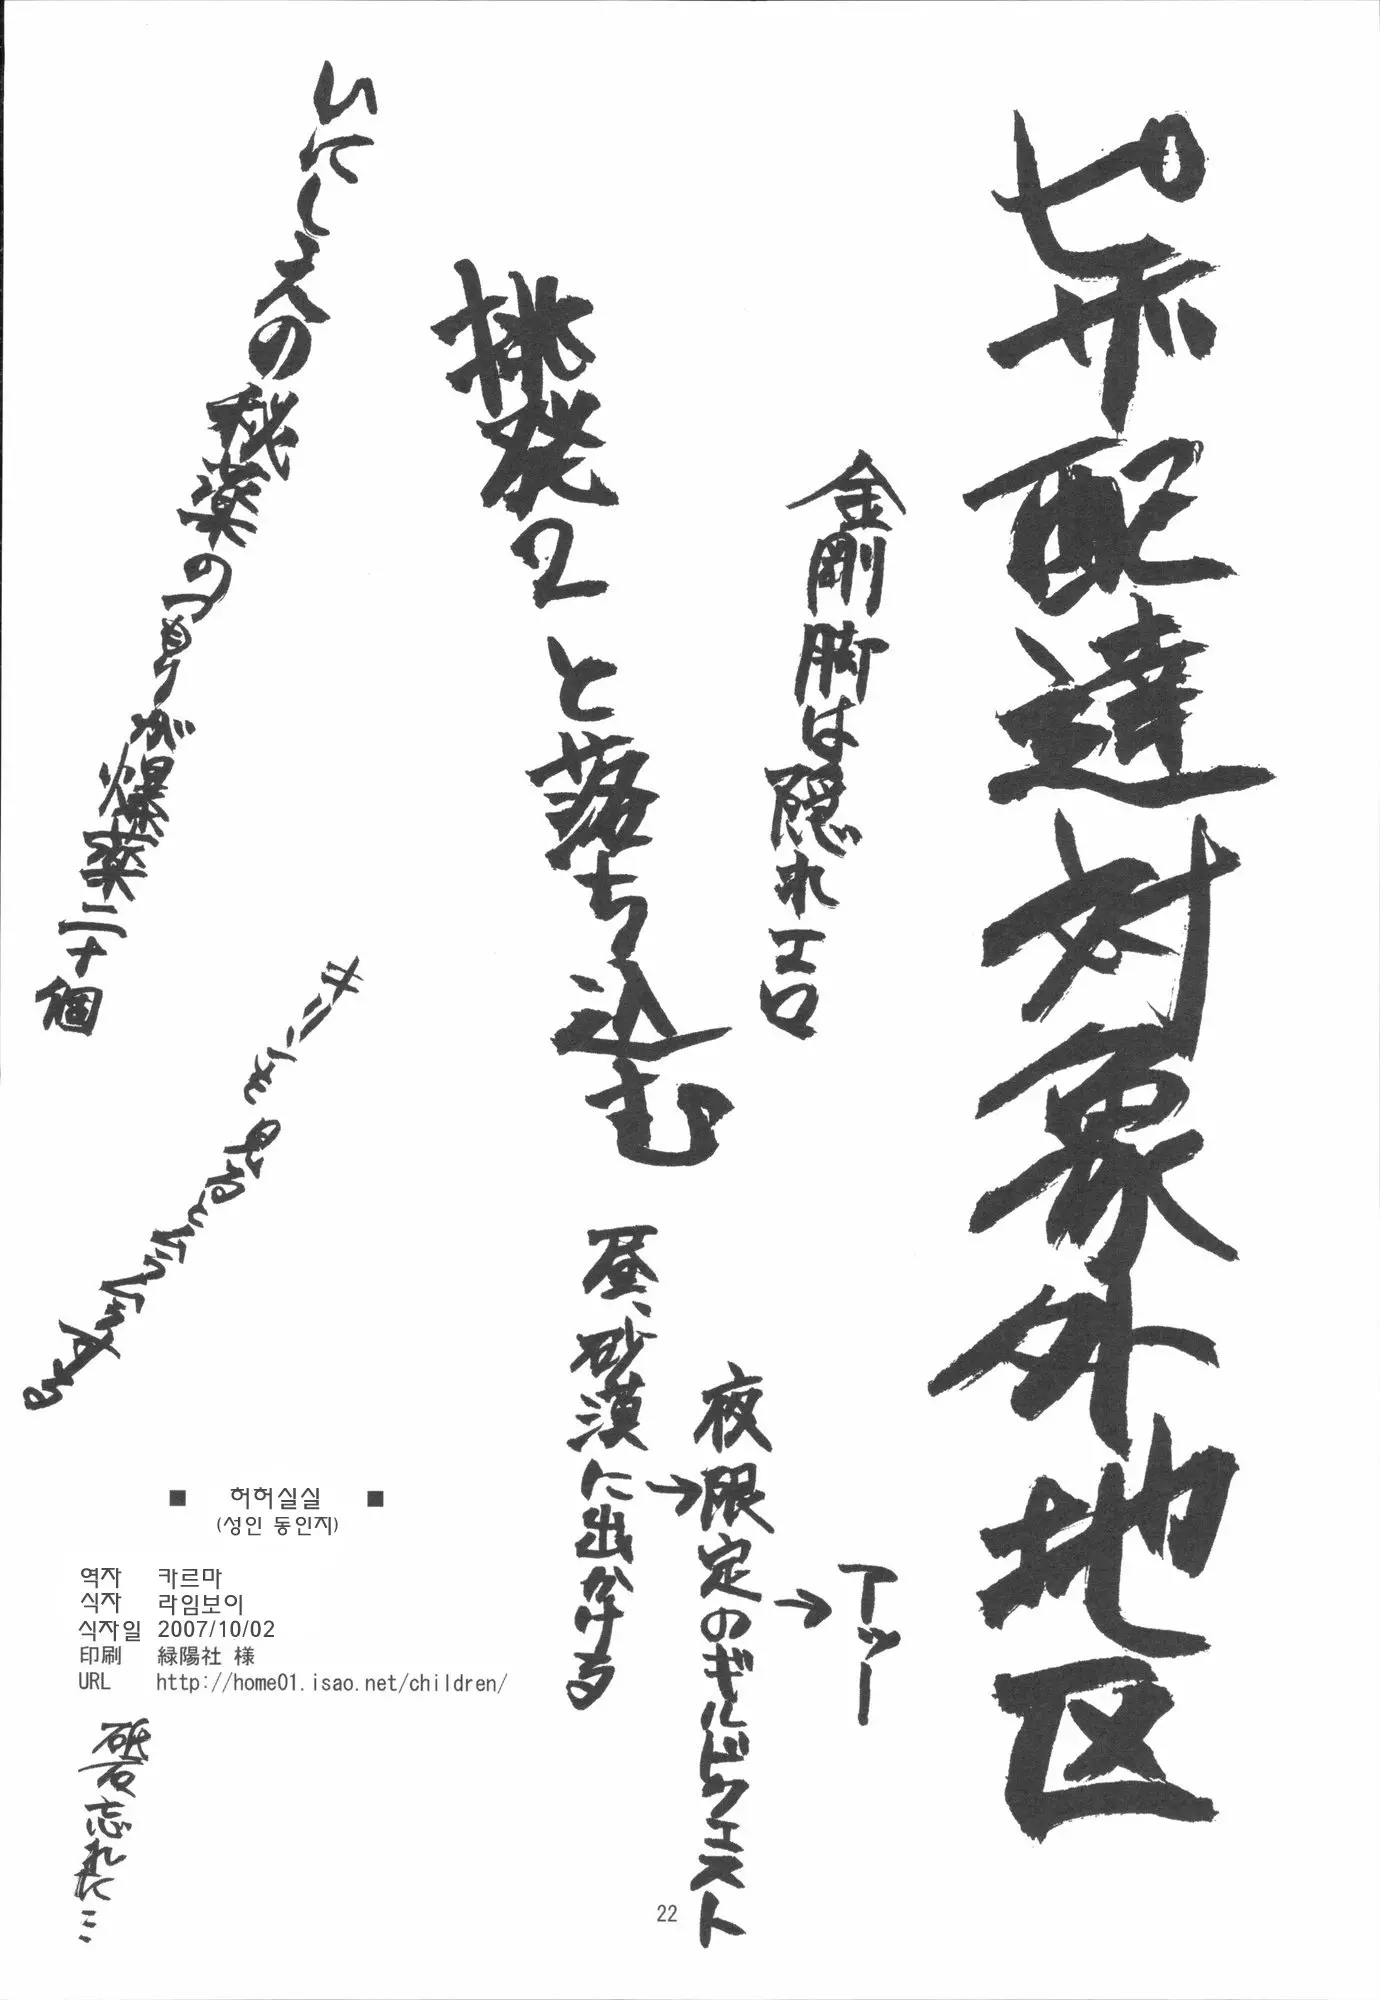 ピザ配達対象外地区
金剛脚は隠れエロ
挑発2と落ち込む
いにしえの秘薬のつもりが爆薬二十個
キリンを見るとドラクエする
昼、砂漠に出かける
→夜限定のギルドクエスト
→アッー
■ 허허실실 ■
(성인 동인지)
역자 카르마
식자 라임보이
식자일 2007/10/02
印刷 緑陽社 様
URL http://home01.isao.net/children/
砥石忘れた…
22